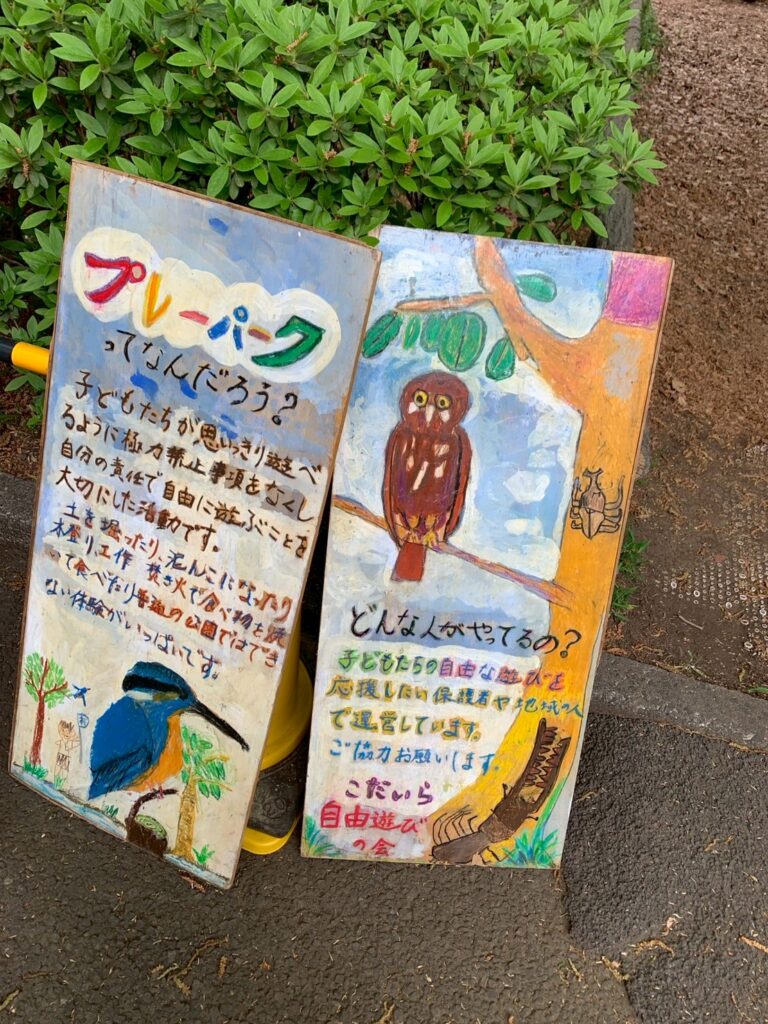 プレーパーク
ってなんだろう?
子どもたちが思いっきり遊べ
るように極力禁止事項をなくし
自分の責任で自由に遊ぶことを
大切にした活動です。
土を掘ったり、泥んこになったり
木登り、工作 焚き火で食べ物を焼
いて食べたり普通の公園ではでき
ない体験がいっぱいです。
どんな人がやってるの?
子どもたちの自由な遊びを
応援したい保護者や地域の人
で運営しています。
ご協力お願いします。
こだいら
自由遊び
の会